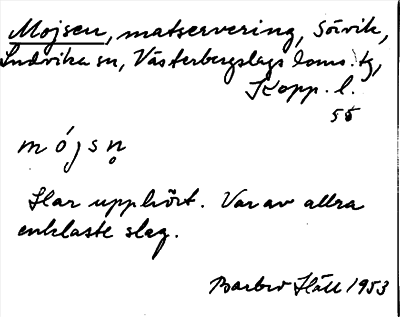 Mojsen, matservering, Sörvik,
Ludvika sn, Västerbergslags doms. tg,
Kopp. l.
55
m ó j s n̥
Har upphört. Var av allra
enklaste slag.
Barbro Häll 1953